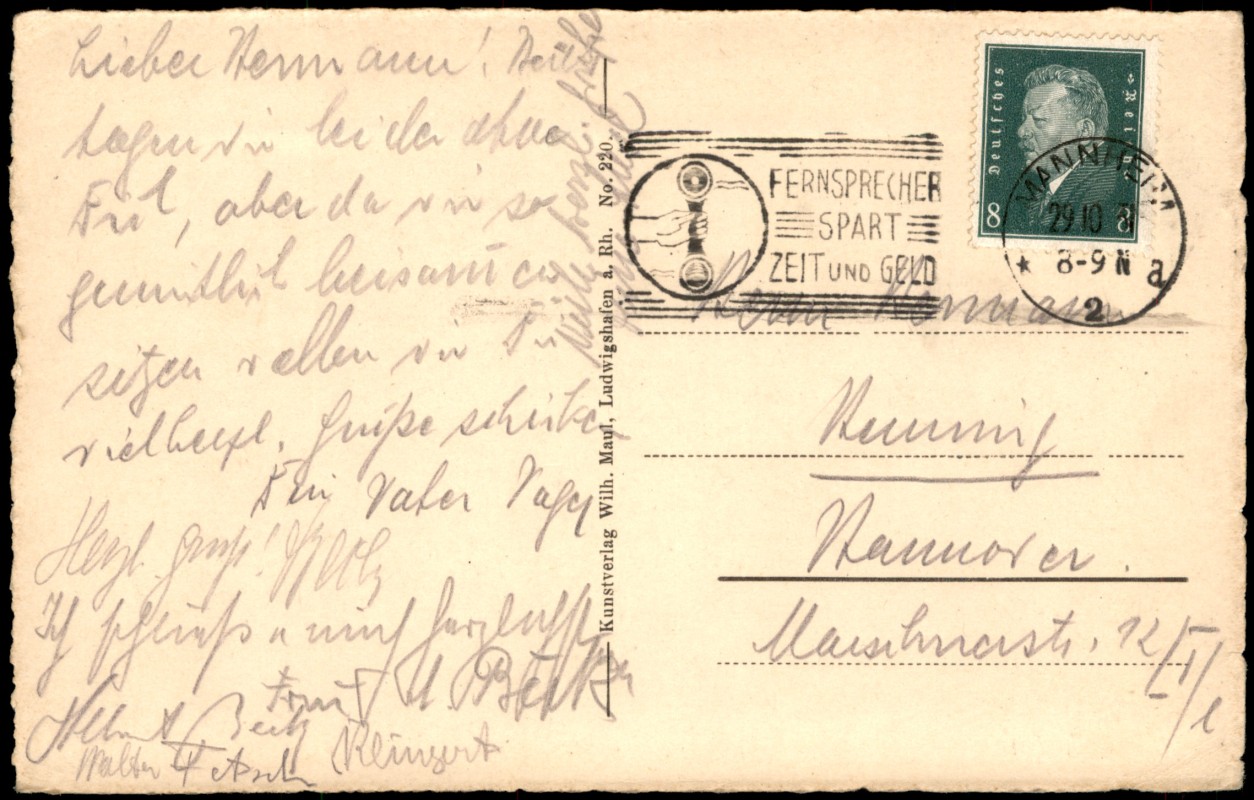 Lieber Hermann! Heute
tagen wir leider ohne
Dich, aber da wir so
gemütlich beisammen
sitzen wollen wir Dir
vielherzl. Grüße schicken
Dein Vater
Herzl. Gruß!
Ich schließe mich herzlichst
Helmut
Walter
Klingert
Viele herzl. Grüße
Kunstverlag Wilh. Maul, Ludwigshafen a. Rh. No. 220.
FERNSPRECHER
SPART
ZEIT UND GELD
Deutsches Reich
8 8
MANNHEIM
29 10 31
8-9 N
* 2 a
Herrn Hermann
Henning
Hannover.
12/II/l